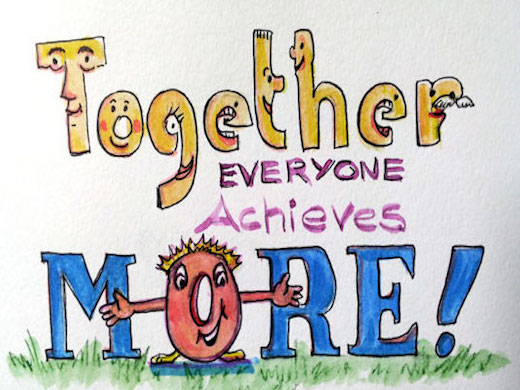 Together
EVERYONE
Achieves
MORE!